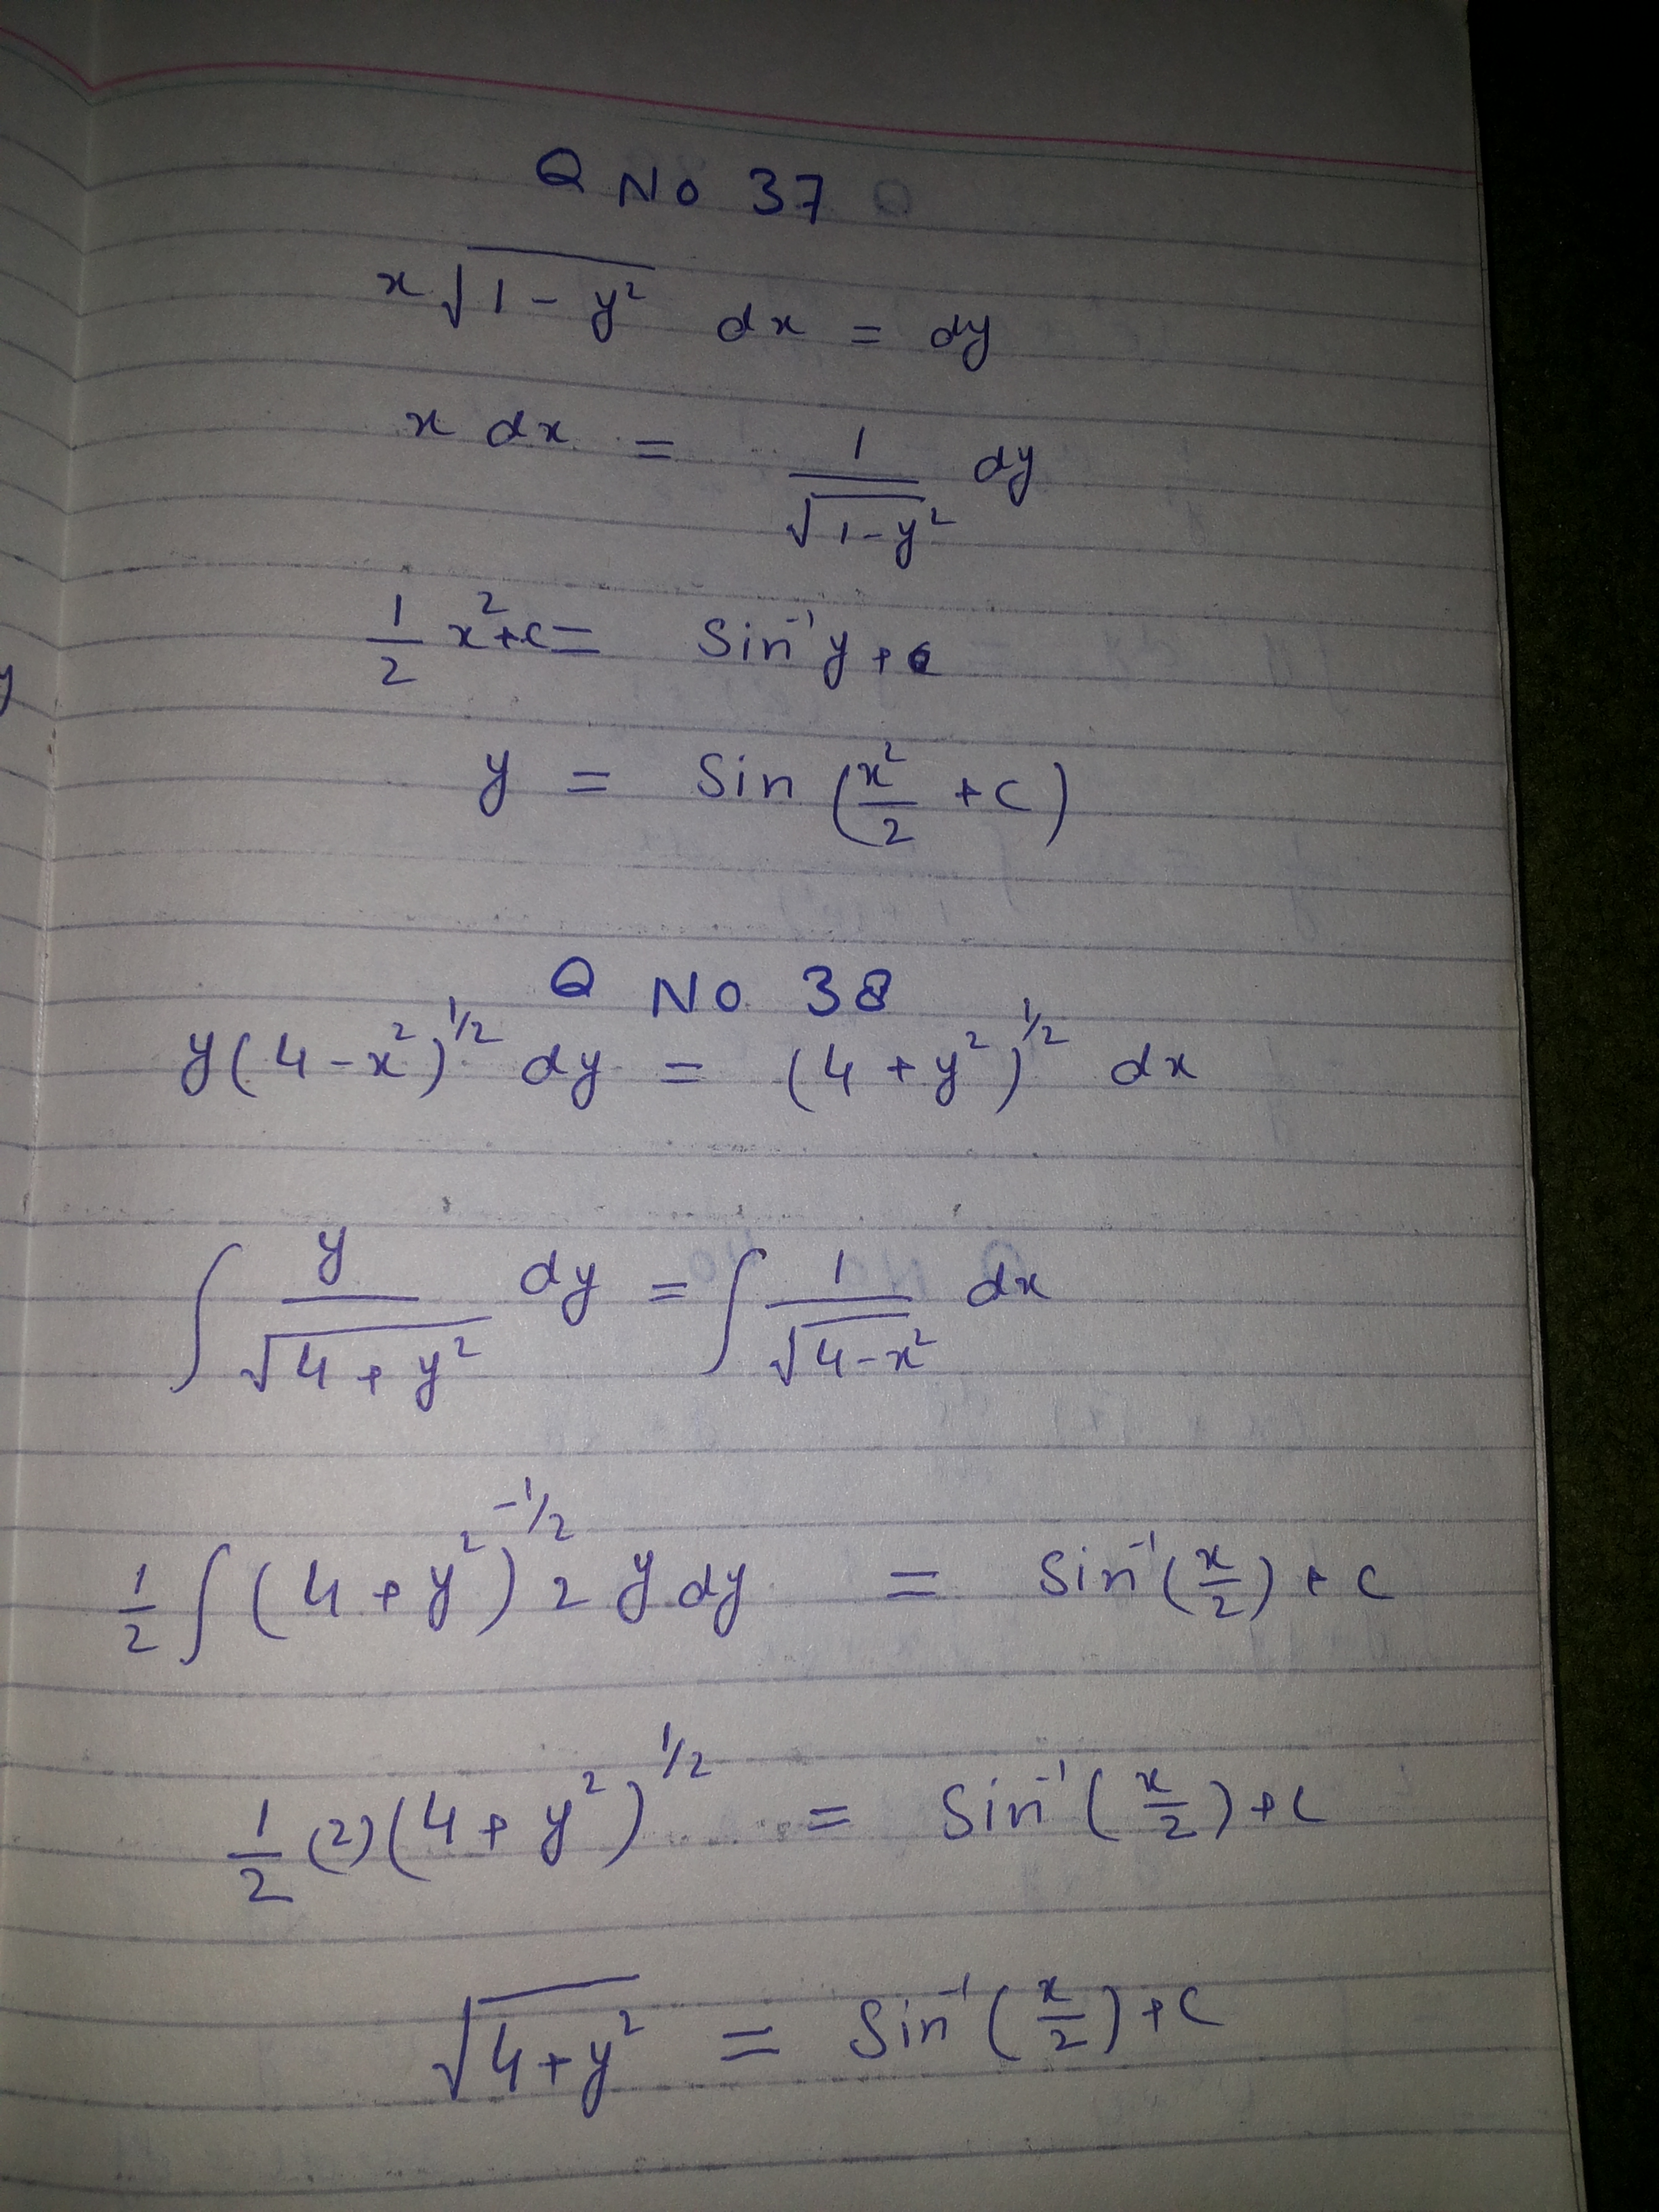 Q No 37
x√(1 - y²) dx = dy
x dx = 1/√(1-y²) dy
1/2 x²+c = Sin⁻¹y +
y = Sin (x²/2 + c)
Q No 38
y(4-x²)^1/2 dy = (4 + y²)^1/2 dx
∫ y/√(4 + y²) dy = ∫ 1/√(4-x²) dx
1/2 ∫ (4 + y²)^-1/2 2 y dy = Sin⁻¹(x/2) + c
1/2 (2)(4 + y²)^1/2 = Sin⁻¹(x/2) + c
√(4+y²) = Sin⁻¹(x/2) + c